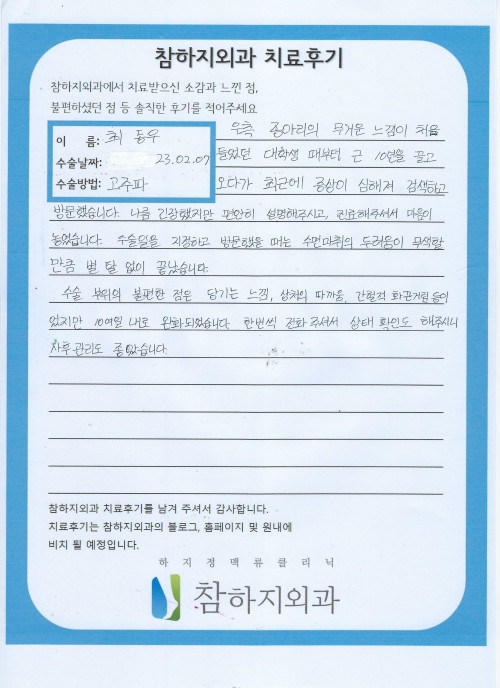 참하지외과 치료후기
참하지외과에서 치료받으신 소감과 느낀 점,
불편하셨던 점 등 솔직한 후기를 적어주세요
이 름: 최 동우
수술날짜: 23.02.07
수술방법: 고주파
우측 종아리의 무거운 느낌이 처음
들었던 대학생 때부터 근 10년을 끌고
오다가 최근에 증상이 심해져 검색하고
방문했습니다. 나름 긴장했지만 편안히 설명해주시고, 진료해주셔서 마음이
놓였습니다. 수술일을 지정하고 방문했을 때는 수면마취의 두려움이 무색할
만큼 별 탈 없이 끝났습니다.
수술 부위의 불편한 점은 당기는 느낌, 상처의 따가움, 간헐적 화끈거림 등이
있지만 10여일 내로 완화되었습니다. 한번씩 전화 주셔서 상태 확인도 해주시니
사후관리도 좋았습니다.
참하지외과 치료후기를 남겨 주셔서 감사합니다.
치료후기는 참하지외과의 블로그, 홈페이지 및 원내에
비치 될 예정입니다.
하지정맥류클리닉
참하지외과